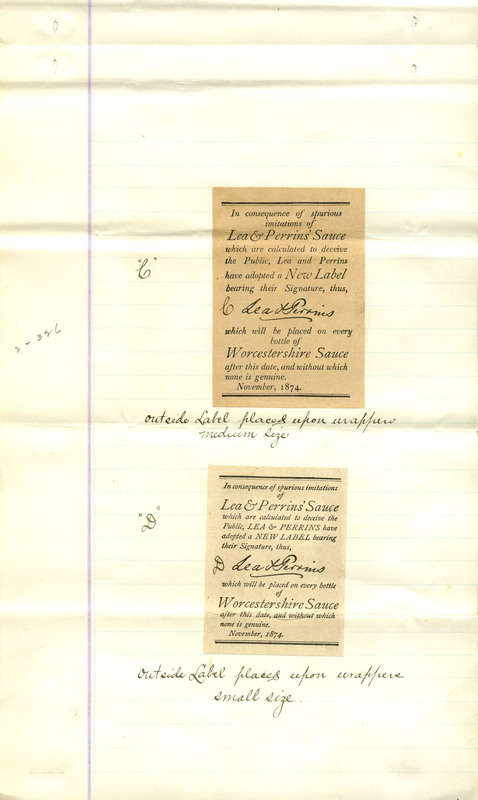 In consequence of spurious
imitations of
Lea & Perrins' Sauce
which are calculated to deceive
the Public, Lea and Perrins
have adopted a New Label
bearing their Signature, thus,
"C"
C Lea & Perrins
which will be placed on every
bottle of
Worcestershire Sauce
after this date, and without which
none is genuine.
November, 1874.
2-326
outside Label placed upon wrappers
medium size
In consequence of spurious imitations
of
Lea & Perrins' Sauce
which are calculated to deceive the
Public, LEA & PERRINS have
adopted a NEW LABEL bearing
their Signature, thus,
"D"
D Lea & Perrins
which will be placed on every bottle
of
Worcestershire Sauce
after this date, and without which
none is genuine.
November, 1874.
outside Label placed upon wrappers
small size.